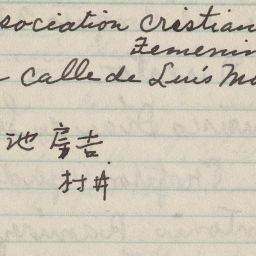 sociation Cristian
Femenin
calle de Luis Mo
池 房吉
村井